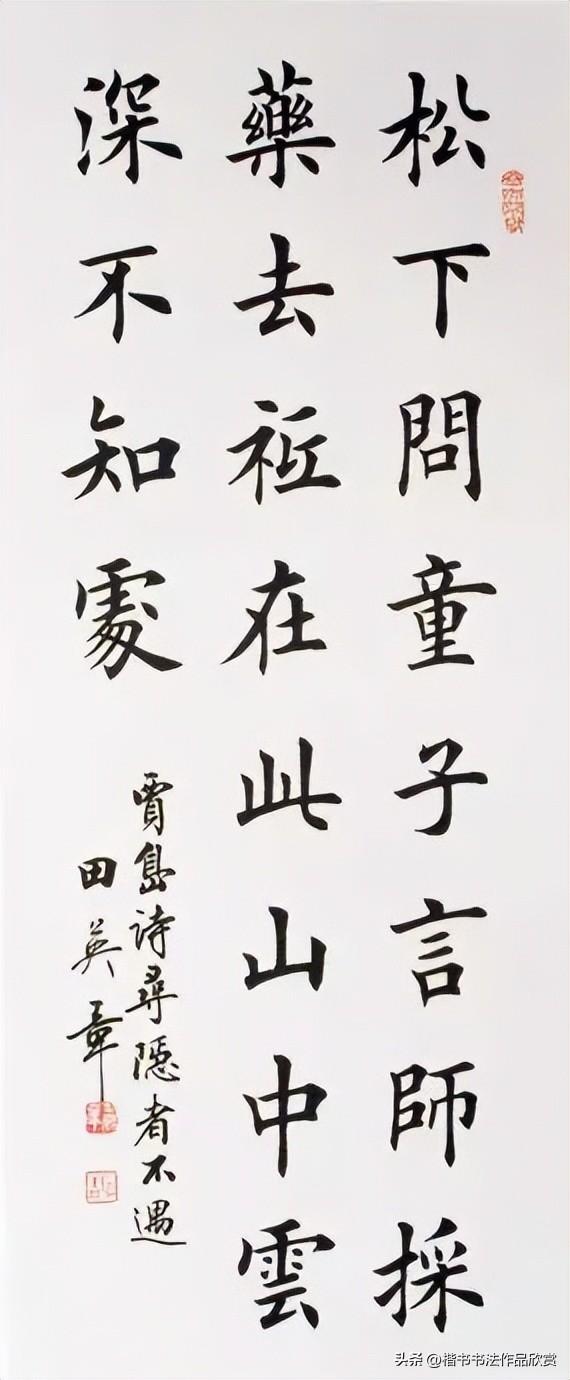 松下問童子言師採
藥去祗在此山中雲
深不知處
賈島詩尋隱者不遇
田英章
头条 @楷书书法作品欣赏